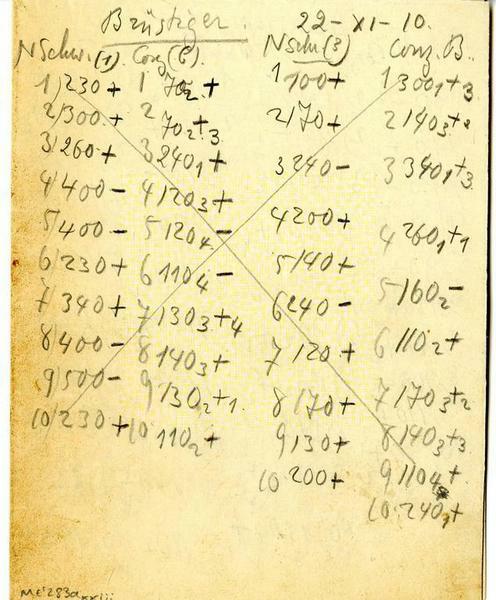 Brüstiger. 22-XI-10.
NSchw.(1). Conz(B). NSch(3) Conz. B.
1/230+ 1 70₂+ 1 100+ 1 300₁+3
2/300+ 2 70₂+3 2/70+ 2 140₃+2
3/260+ 3 240₁+ 3 340- 3 340₁+3
4/400- 4 120₃+ 4 200+ 4 260₁+1
5/400- 5 120₄- 5/40+ 5/160₂-
6/230+ 6 110₄- 6 240- 6 110₂+
7/340+ 7 130₃+4 7 120+ 7 170₃+2
8/400- 8 140₃+ 8 170+ 8 140₃+3
9/500- 9 130₂+1. 9 130+ 9 110₄+
10/230+ 10 110₂+ 10 200+ 10 240₁+